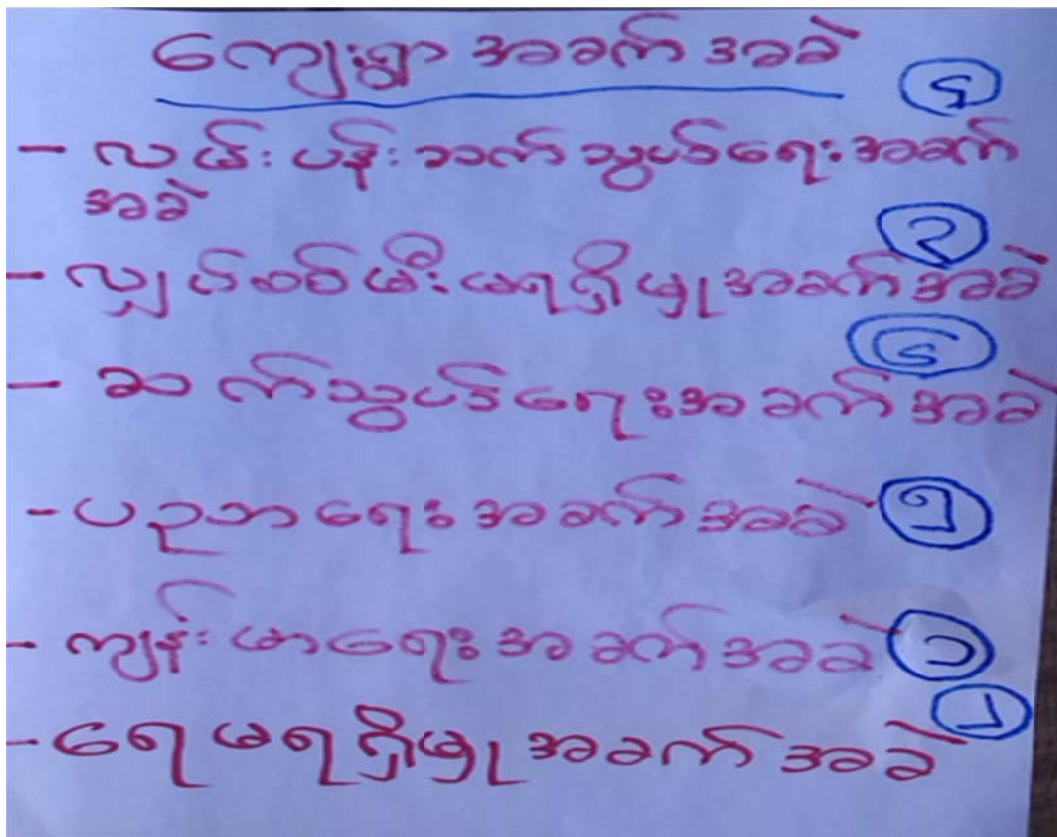 ကျေးရွာ အခက် အခဲ
၄
- လမ်းပန်းဆက်သွယ်ရေးအခက်
အခဲ
၃
- လျှပ်စစ်မီးမရရှိမှုအခက်အခဲ
၆
- ဆက်သွယ်ရေးအခက်အခဲ
- ပညာရေးအခက်အခဲ ၅
- ကျန်းမာရေးအခက်အခဲ ၁
၂
- ရေမရရှိမှုအခက်အခဲ